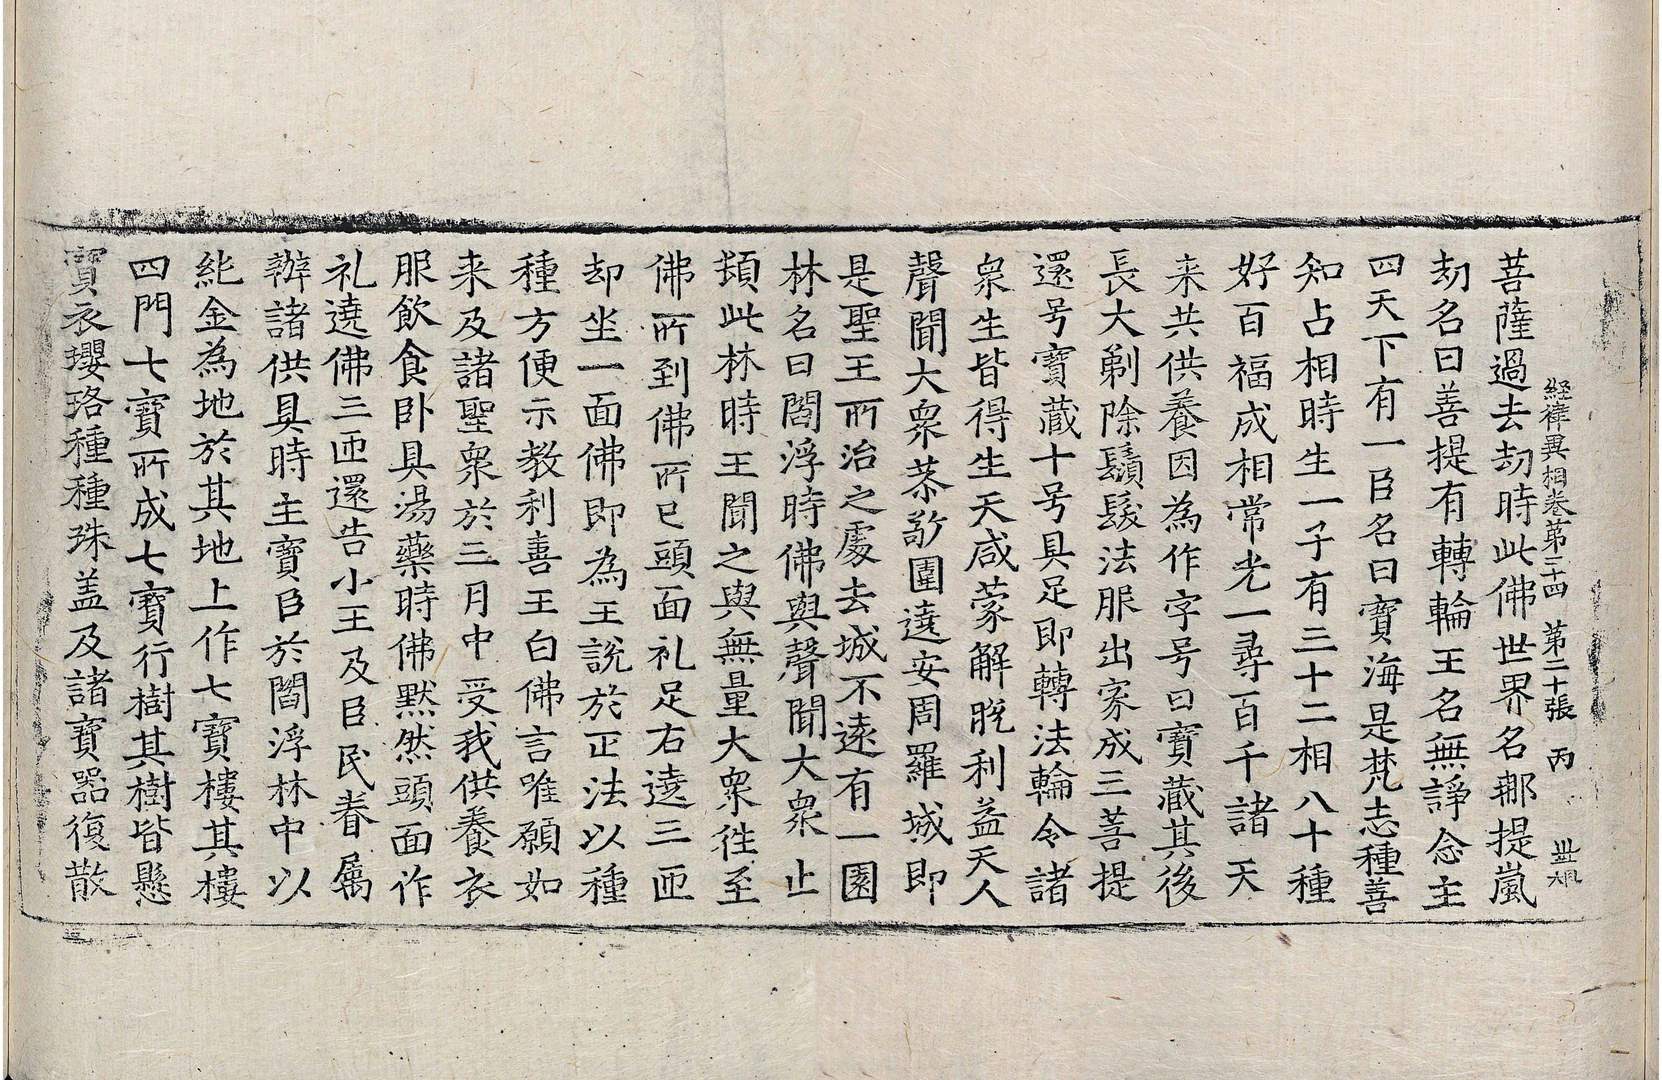 経律異相卷第二十四　第二十張　丙
菩薩過去劫時此佛世界名那提嵐
劫名曰善提有轉輪王名無諍念主
四天下有一臣名曰寶海是梵志種善
知占相時生一子有三十二相八十種
好百福成相常光一尋百千諸天
来共供養因為作字号曰寶藏其後
長大剃除鬚髮法服出家成三菩提
還号寶藏十号具足即轉法輪令諸
衆生皆得生天咸蒙解脫利益天人
聲聞大衆恭敬圍遶安周羅城即
是聖王所治之處去城不遠有一園
林名曰閻浮時佛與聲聞大衆止
頓此林時王聞之與無量大衆徃至
佛所到佛所已頭面礼足右遶三匝
却坐一面佛即為王說於正法以種
種方便示教利喜王白佛言唯願如
来及諸聖衆於三月中受我供養衣
服飲食卧具湯藥時佛默然頭面作
礼遶佛三匝還告小王及臣民眷屬
辦諸供具時主寶臣於閻浮林中以
純金為地於其地上作七寶樓其樓
四門七寶所成七寶行樹其樹皆懸
寶衣瓔珞種種珠盖及諸寶器復散